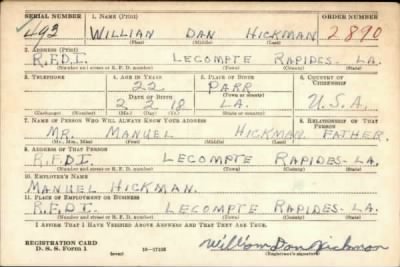 SERIAL NUMBER 1. NAME (Print) ORDER NUMBER
493 WILLIAN DAN HICKMAN 2890
(First) (Middle) (Last)
2. ADDRESS (Print)
R.F.D.I. LECOMPTE RAPIDES- LA.
(Number and street or R. F. D. number) (Town) (County) (State)
3. TELEPHONE 4. AGE IN YEARS 5. PLACE OF BIRTH 6. COUNTRY OF CITIZENSHIP
22 PARR
(Town or county)
DATE OF BIRTH
2 2 18 LA. U.S.A.
(Exchange) (Number) (Mo.) (Day) (Yr.) (State or country)
7. NAME OF PERSON WHO WILL ALWAYS KNOW YOUR ADDRESS 8. RELATIONSHIP OF THAT PERSON
MR. MANUEL HICKMAN FATHER.
(Mr., Mrs., Miss) (First) (Middle) (Last)
9. ADDRESS OF THAT PERSON
R.F.D.I. LECOMPTE RAPIDES- LA.
(Number and street or R. F. D. number) (Town) (County) (State)
10. EMPLOYER'S NAME
MANUEL HICKMAN.
11. PLACE OF EMPLOYMENT OR BUSINESS
R.F.D.I. LECOMPTE RAPIDES- LA.
(Number and street or R. F. D. number) (Town) (County) (State)
I AFFIRM THAT I HAVE VERIFIED ABOVE ANSWERS AND THAT THEY ARE TRUE.
REGISTRATION CARD
D. S. S. Form 1 (over) 16—17105 William Dan Hickman
(Registrant's signature)